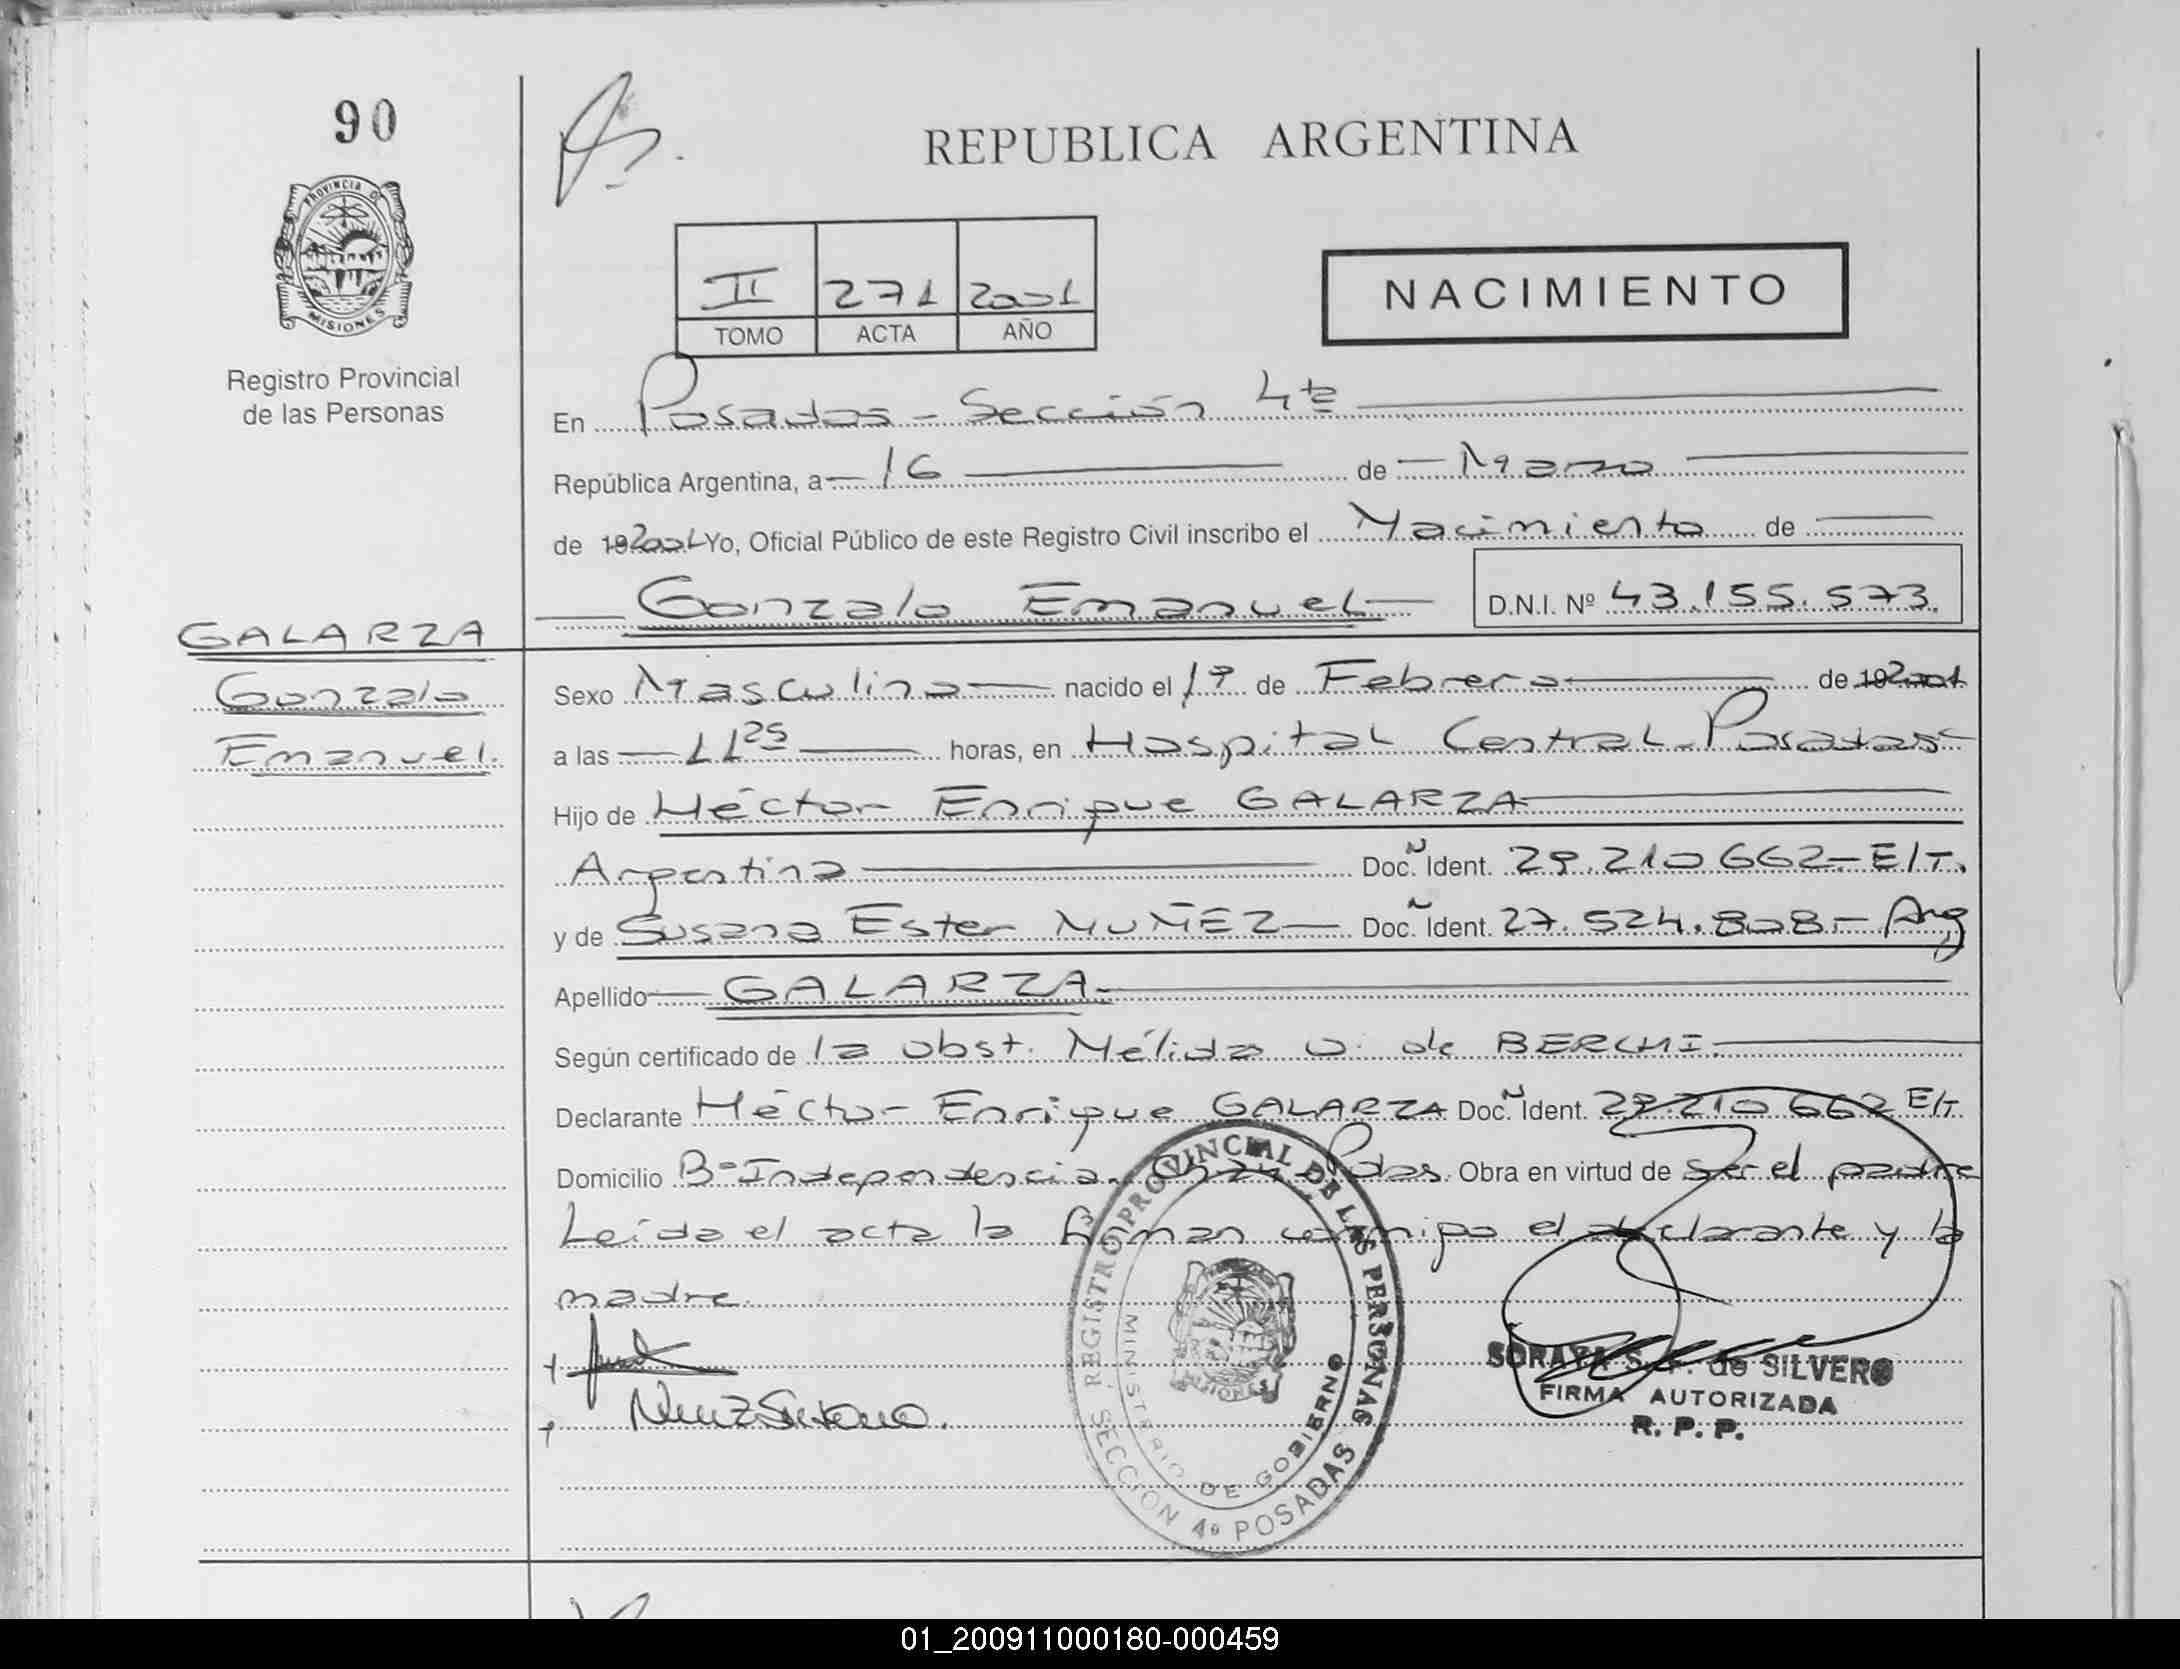 90
PROVINCIA DE
MISIONES
Registro Provincial
de las Personas
REPUBLICA ARGENTINA
II 271 2001
TOMO ACTA AÑO
NACIMIENTO
En Posadas - Sección 4ta
República Argentina, a 16 de Marzo
de 192001 Yo, Oficial Público de este Registro Civil inscribo el Nacimiento de
Gonzalo Emanuel D.N.I. Nº 43.155.573.
GALARZA
Gonzalo
Emanuel.
Sexo Masculino nacido el 1º de Febrero de 192001
a las 11 25 horas, en Hospital Central - Posadas
Hijo de Héctor Enrique GALARZA
Argentina Doc. N Ident. 29.210.662 - E/T.
y de Susana Ester NUÑEZ Doc. N Ident. 27.524.808 - Arg
Apellido GALARZA
Según certificado de la obst. Nélida de BERCHI.
Declarante Héctor Enrique GALARZA Doc. N Ident. 29.210.662 E/T.
Domicilio Bº Independencia. Pdas. Obra en virtud de ser el padre
Leída el acta la firman conmigo el declarante y la
madre.
Nuñez Susana.
REGISTRO PROVINCIAL DE LAS PERSONAS
SECCION 4º POSADAS
MINISTERIO DE GOBIERNO
MISIONES
SORAYA S. de SILVERO
FIRMA AUTORIZADA
R. P. P.
01_200911000180-000459